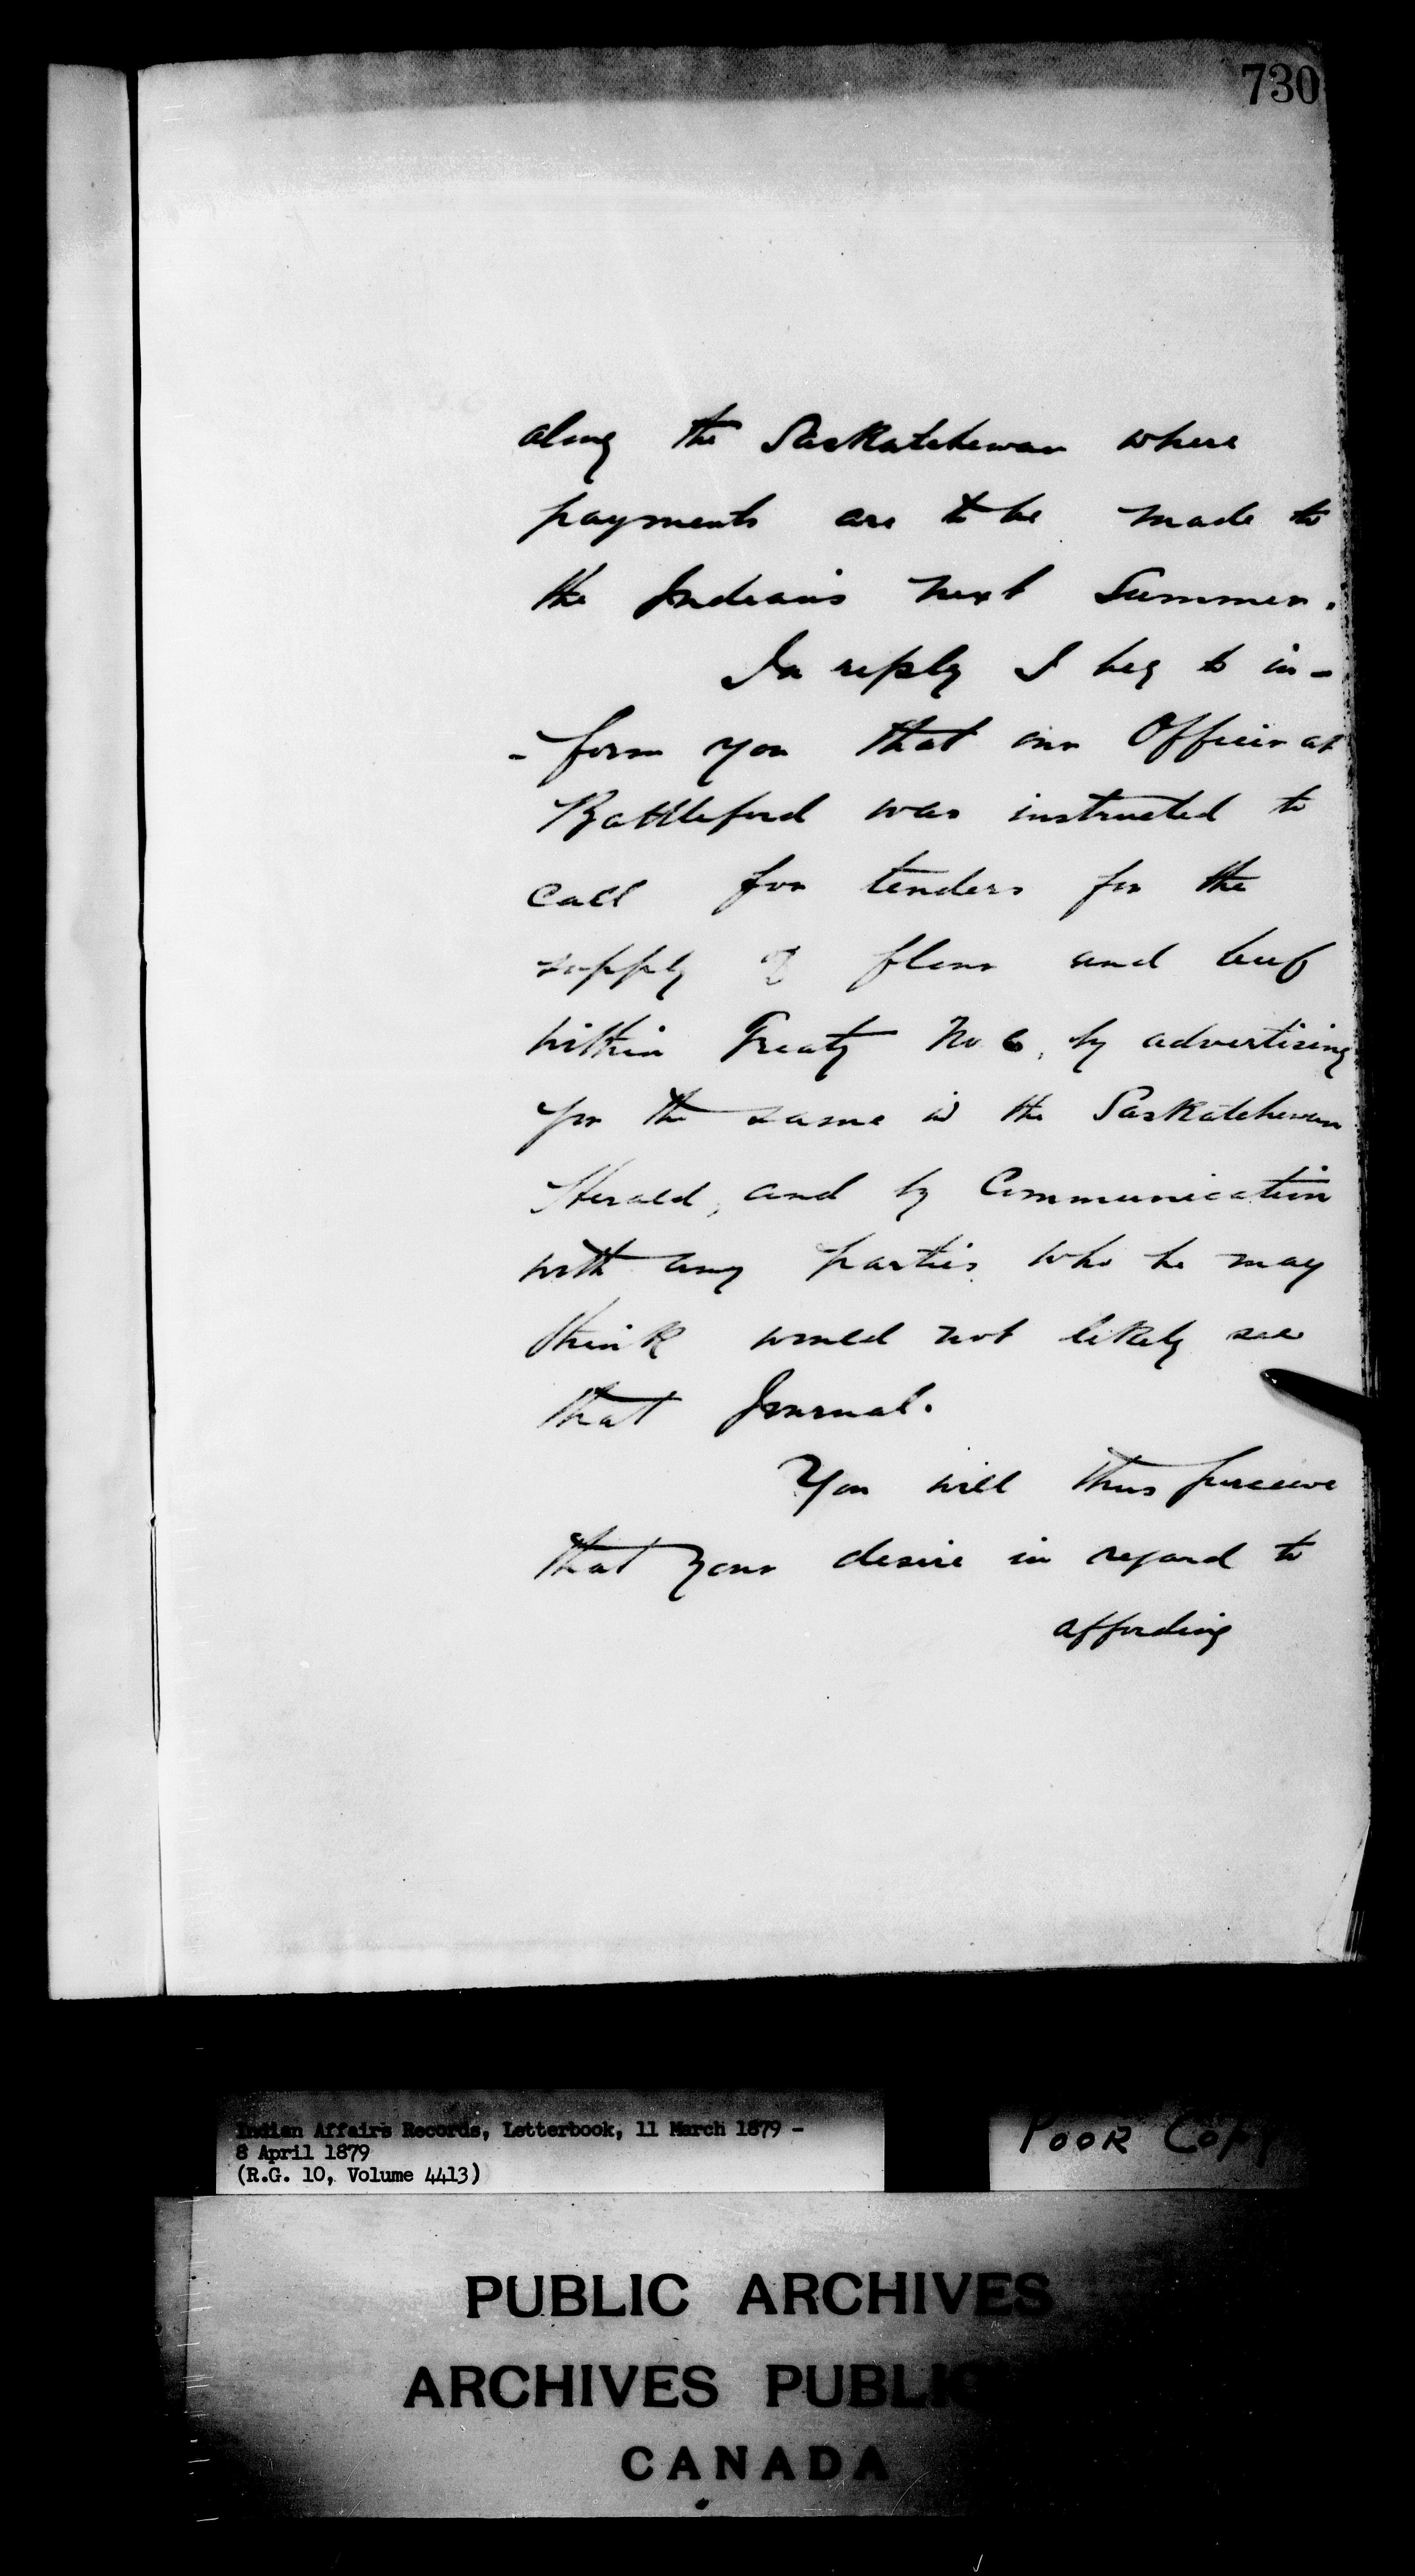 730
along the Saskatchewan where
payments are to be made to
the Indians next Summer.
In reply I beg to in-
-form you that our Officer at
Battleford was instructed to
call for tenders for the
supply of flour and beef
within Treaty No 6, by advertising
for the same in the Saskatchewan
Herald, and by Communication
with any parties who he may
think would not likely see
that Journal.
You will thus perceive
that your desire in regard to
affording
Indian Affairs Records, Letterbook, 11 March 1879 -
8 April 1879
(R.G. 10, Volume 4413)
POOR COPY
PUBLIC ARCHIVES
ARCHIVES PUBLIC
CANADA